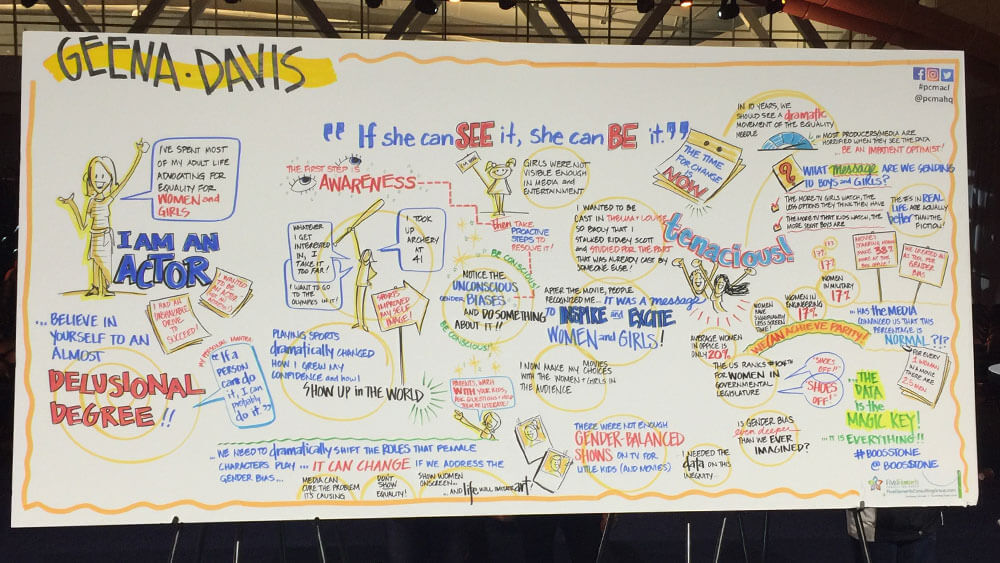 GEENA · DAVIS
#pcmacl
@pcmahq
I'VE SPENT MOST
OF MY ADULT LIFE
ADVOCATING FOR
EQUALITY FOR
WOMEN and
GIRLS
I AM AN
ACTOR
I HAD AN
UNSHAKABLE
DRIVE
TO
SUCCEED!
I WANTED
TO BE
AN ACTOR
... BELIEVE IN
YOURSELF TO AN
ALMOST
DELUSIONAL
DEGREE !!
MY PERSONAL MANTRA
"If a
PERSON
can do
it, I can
probably
do it."
"If she can SEE it, she can BE it."
THE FIRST STEP IS
AWARENESS
then TAKE
PROACTIVE
STEPS TO
RESOLVE IT!
WHATEVER
I GET
INTERESTED
IN, I
TAKE IT
TOO FAR!
I WANT TO GO
TO THE
OLYMPICS IN IT!
I TOOK
UP
ARCHERY
AT
41
SPORTS
IMPROVED
MY SELF
IMAGE!
PLAYING SPORTS
dramatically CHANGED
HOW I GREW MY
CONFIDENCE and how I
SHOW UP in THE WORLD
I'M NEW
GIRLS WERE NOT
VISIBLE ENOUGH
IN MEDIA and
ENTERTAINMENT
BE CONSCIOUS!
NOTICE THE
UNCONSCIOUS
GENDER BIASES
AND DO SOMETHING
ABOUT IT!!
BE CONSCIOUS!
PARENTS, WATCH
WITH YOUR KIDS
ASK QUESTIONS + HELP
THEM BE LITERATE!
I WANTED TO BE
CAST IN THELMA + LOUISE
SO BADLY THAT I
STALKED RIDLEY SCOTT
and STUDIED FOR THE PART
THAT WAS ALREADY CAST BY
SOMEONE ELSE!
tenacious!
AFTER THE MOVIE, PEOPLE
RECOGNIZED ME... IT WAS A message
TO INSPIRE and EXCITE
WOMEN and GIRLS!
I NOW MAKE MY MOVIES
CHOICES
WITH THE WOMEN + GIRLS IN
THE AUDIENCE
THERE WERE NOT ENOUGH
GENDER-BALANCED
SHOWS ON TV FOR
LITTLE KIDS (AND MOVIES)
I NEEDED THE
data ON THIS
INEQUITY...
IS GENDER BIAS
even deeper
THAN WE EVER
IMAGINED?
... WE NEED TO dramatically SHIFT THE ROLES THAT FEMALE
CHARACTERS PLAY ... IT CAN CHANGE IF WE ADDRESS THE
GENDER BIAS...
MEDIA CAN
CURE THE PROBLEM
IT'S CAUSING
DON'T
SHOW
EQUALITY!
SHOW WOMEN
ONSCREEN...
... AND life WILL IMITATE art!
THE TIME
FOR CHANGE
IS
NOW
IN 10 YEARS, WE
SHOULD SEE A dramatic
MOVEMENT OF THE EQUALITY
NEEDLE
... MOST PRODUCERS/MEDIA ARE
HORRIFIED WHEN THEY SEE THE DATA
... BE AN IMPATIENT OPTIMIST!
WHAT message ARE WE SENDING
TO BOYS and GIRLS?
THE MORE TV GIRLS WATCH, THE
LESS OPTIONS THEY THINK THEY HAVE
THE MORE TV THAT KIDS WATCH, THE
MORE SEXIST BOYS ARE
IN REAL
LIFE ARE EQUALLY
better THAN THE
FICTION!
17%
17%
WOMEN
IN MILITARY
17%
WOMEN IN
ENGINEERING
17%
WOMEN
HAVE
SIGNIFICANTLY
LESS SCREEN
TIME
MAKE 38%
MORE AT THE
BOX OFFICE
GENDER
BIAS
... HAS the MEDIA
CONVINCED US THAT THIS
PERCENTAGE IS
NORMAL ?!?
WE CAN ACHIEVE PARITY!
AVERAGE WOMEN
IN OFFICE IS
ONLY 20%
THE US RANKS
FOR WOMEN IN
GOVERNMENTAL
LEGISLATURE
SHOES
OFF!!
SHOES
OFF!
FOR EVERY
1 WOMAN
IN A MOVIE
THERE ARE
2.5 MEN
... THE
DATA
Is the
MAGIC KEY!
... IT IS EVERYTHING!!
#BOOSSTONE
@BOOSSTONE